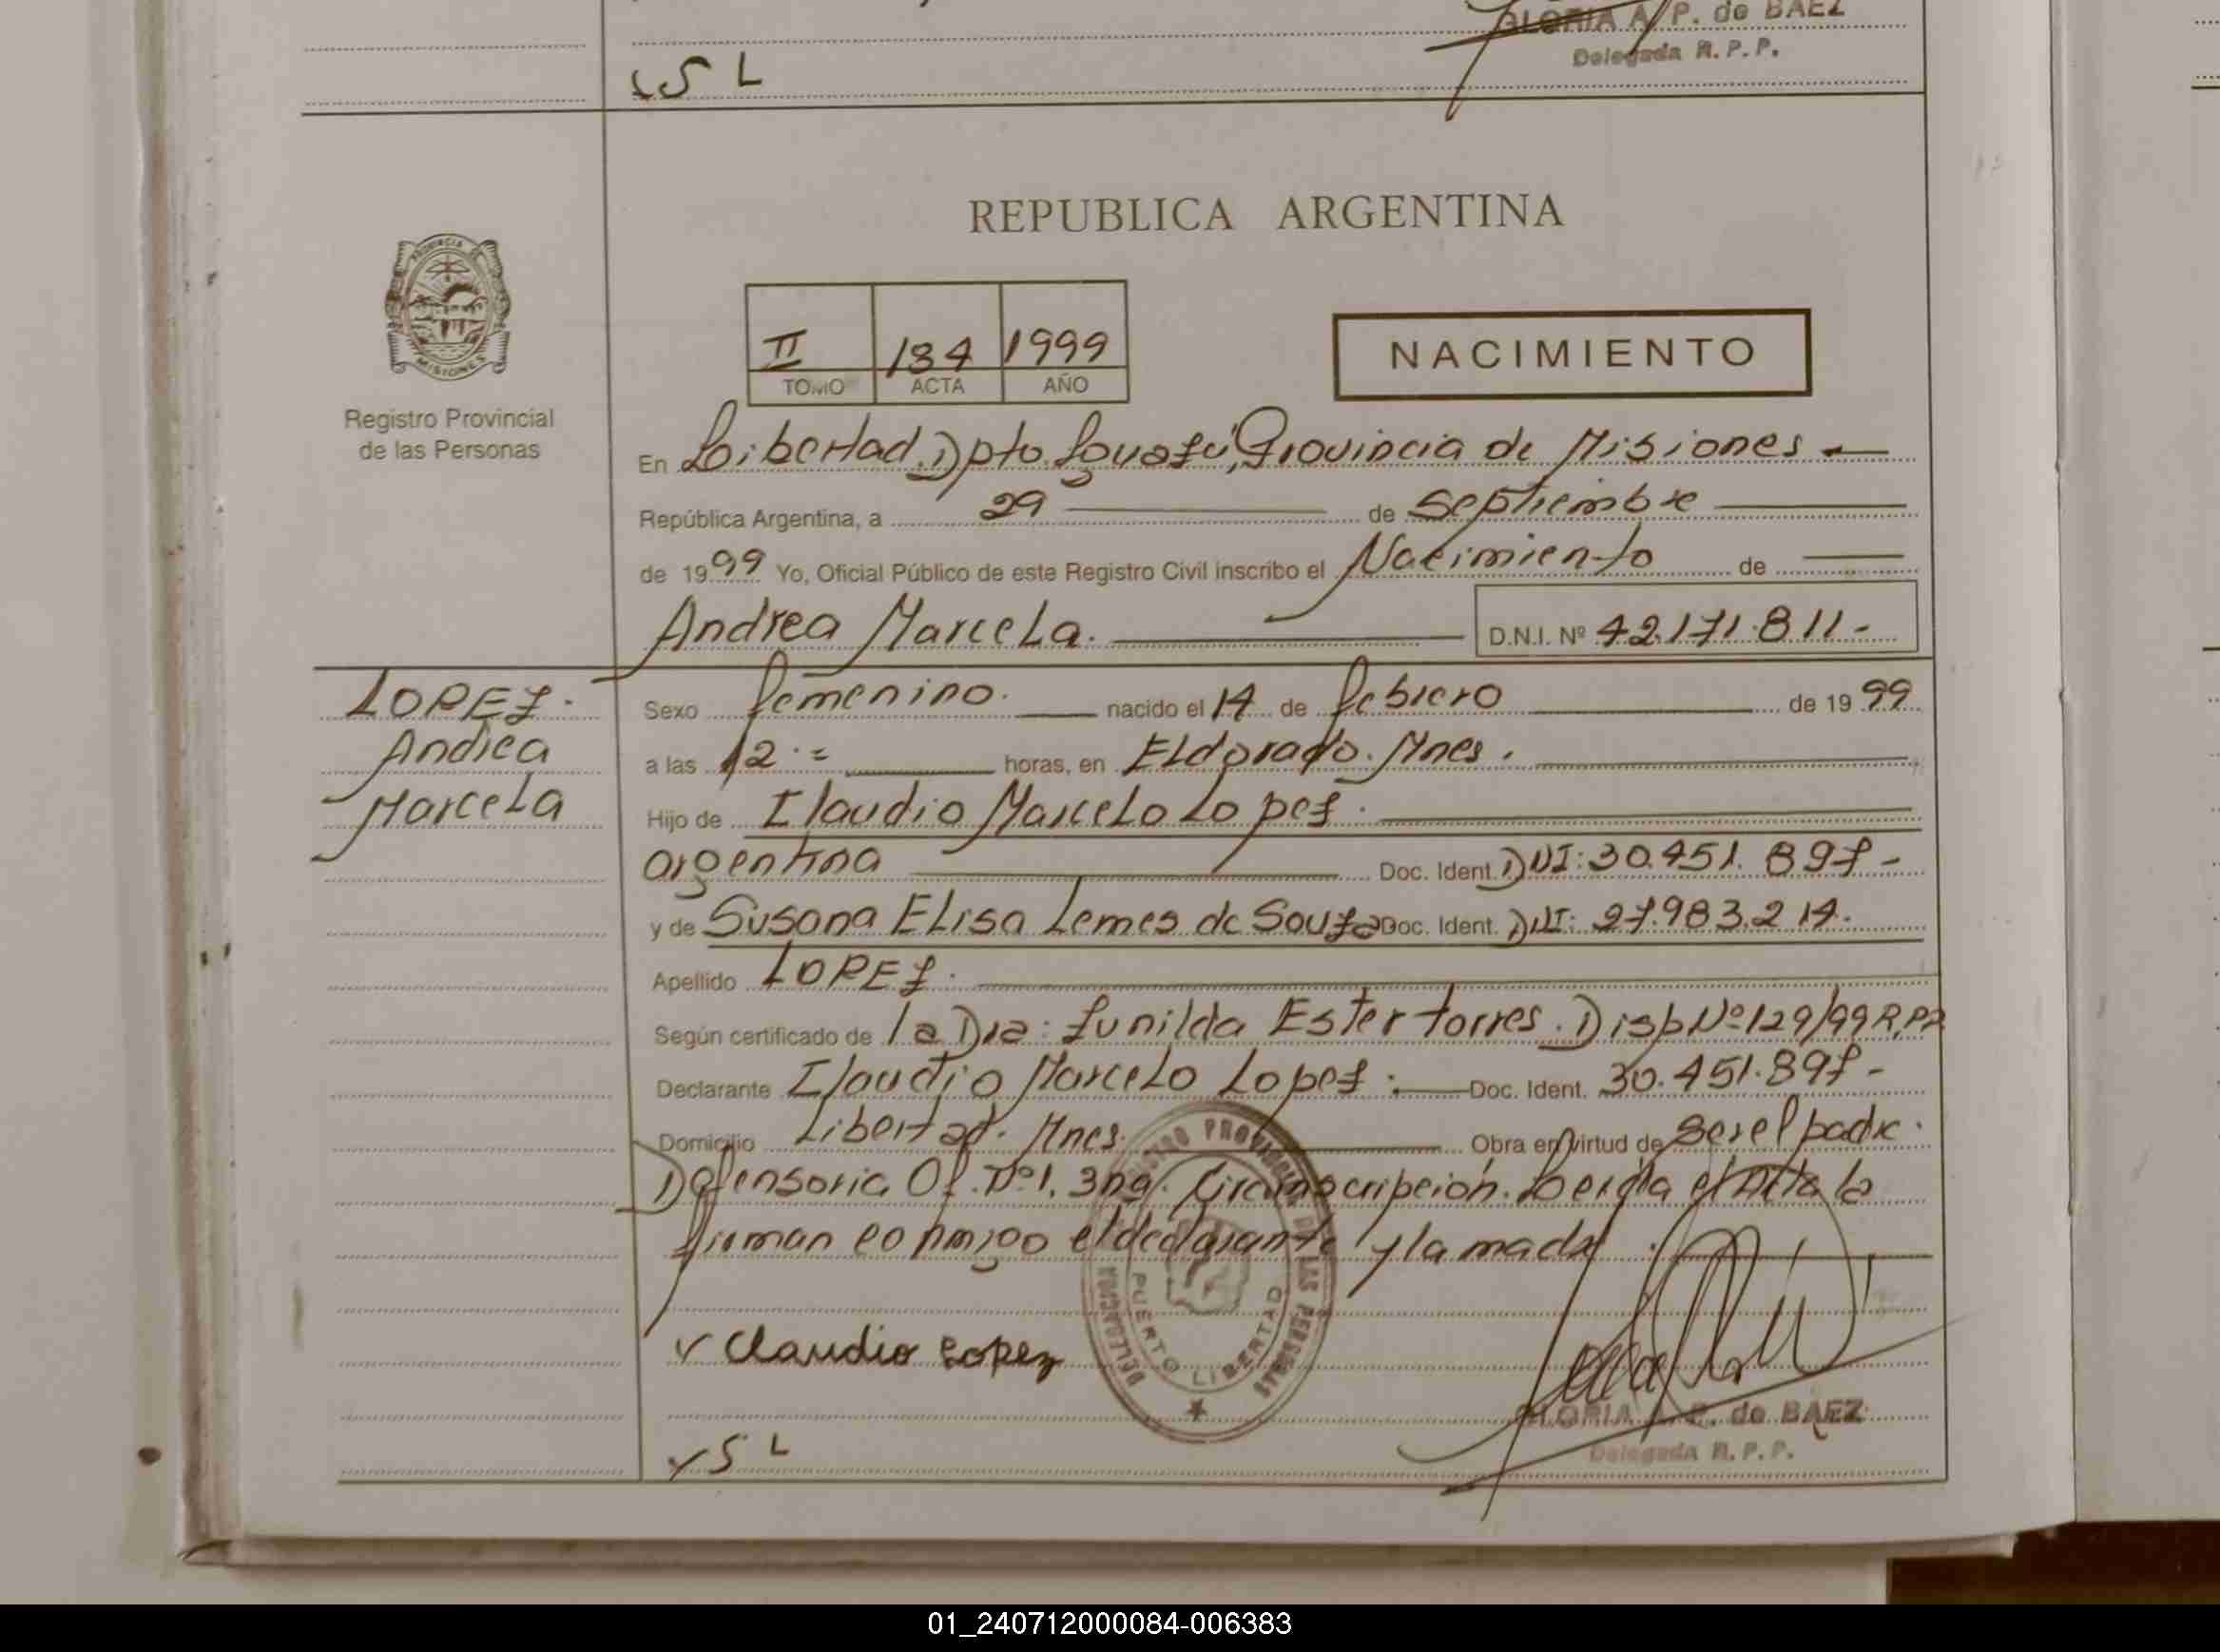 GLORIA A. P. de BAEZ
Delegada R. P. P.
S L
REPUBLICA ARGENTINA
PROVINCIA DE MISIONES
Registro Provincial
de las Personas
II 134 1999
TOMO ACTA AÑO
NACIMIENTO
En Libertad, Dpto. Iguazú, Provincia de Misiones
República Argentina, a 29 de Septiembre
de 1999 Yo, Oficial Público de este Registro Civil inscribo el Nacimiento de
Andrea Marcela. D.N.I. Nº 42.171.811-
LOPEZ.
Andrea
Marcela
Sexo femenino. nacido el 14 de febrero de 1999
a las 12.= horas, en Eldorado. Mnes.
Hijo de Claudio Marcelo Lopez.
argentina Doc. Ident. DNI: 30.451.897-
y de Susana Elisa Lemes de Souza Doc. Ident. DNI: 27.983.214.
Apellido LOPEZ.
Según certificado de la Dra: Zunilda Ester Torres. Disp Nº 129/99 R.P.P
Declarante Claudio Marcelo Lopez. Doc. Ident. 30.451.897-
Domicilio Libertad. Mnes. Obra en virtud de ser el padre.
Defensoria Of. Nº 1. 3ra. Circunscripción. Leida el Acta la
firman conmigo el declarante y la madre.
Claudio Lopez
S L
REGISTRO PROVINCIAL DE LAS PERSONAS
DELEGACION
PUERTO LIBERTAD
GLORIA A. P. de BAEZ
Delegada R. P. P.
01_240712000084-006383